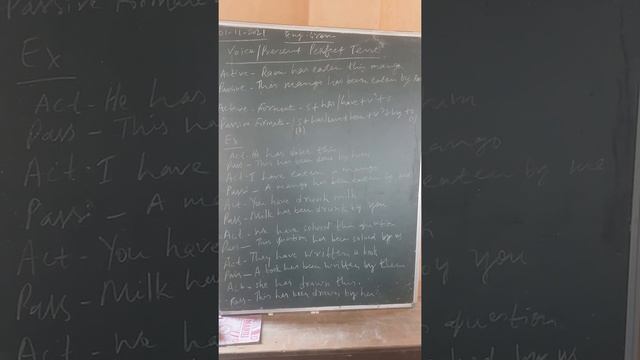 01-11-2021 Eng. Gram
Voice/Present Perfect Tense
Active - Ram has eaten this mango
Passive - This mango has been eaten by Ram
Active Format - S + has/have + V3 + O
Passive Format - S + has/have + been + V3 + by + O
Ex
Act - He has done this
Pass - This has been done by him
Act - I have eaten a mango
Pass - A mango has been eaten by me
Act - You have drunk milk
Pass - Milk has been drunk by you
Act - We have solved this question
Pass - This question has been solved by us
Act - They have written a book
Pass - A book has been written by them
Act - She has drawn this.
Pass - This has been drawn by her.